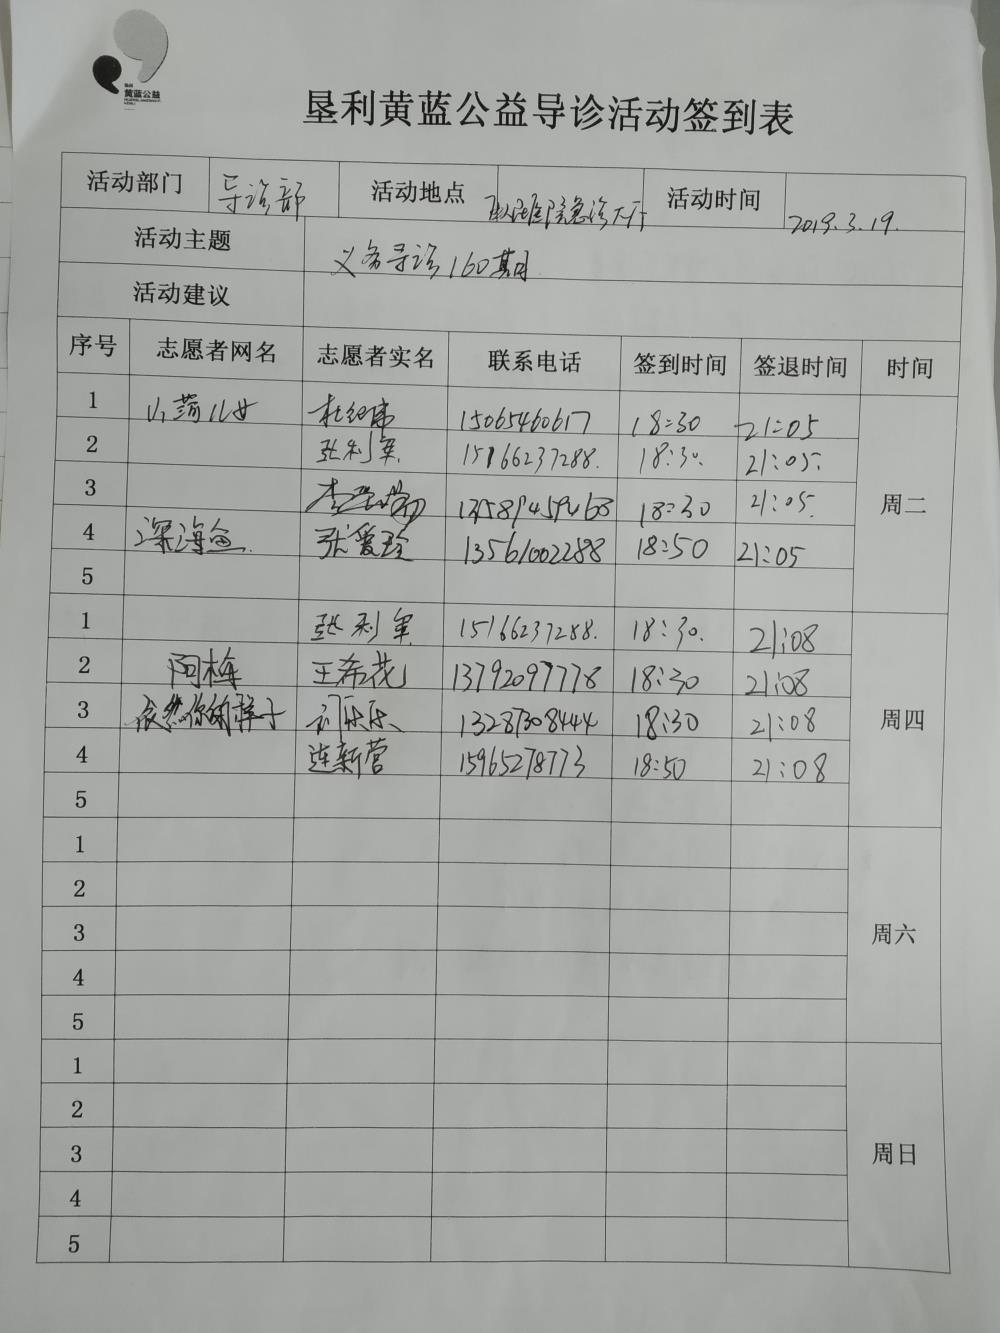 垦利
黄蓝公益
垦利黄蓝公益导诊活动签到表
活动部门 导诊部 活动地点 医院急诊大厅 活动时间 2019.3.19.
活动主题 义务导诊160期
活动建议
序号 志愿者网名 志愿者实名 联系电话 签到时间 签退时间 时间
1 儿女 杜红伟 15065460617 18:30 21:05
2 张利军 15166237288. 18:30. 21:05.
3 李 13589459268 18:30 21:05.
周二
4 深海鱼. 张爱玲 13561002288 18:50 21:05
5
1 张利军 15166237288. 18:30. 21:08
2 阿梅 王希花 13792097778 18:30 21:08
3 依然你的样子 13287308444 18:30 21:08 周四
4 连新营 15965278773 18:50 21:08
5
1
2
3 周六
4
5
1
2
3 周日
4
5